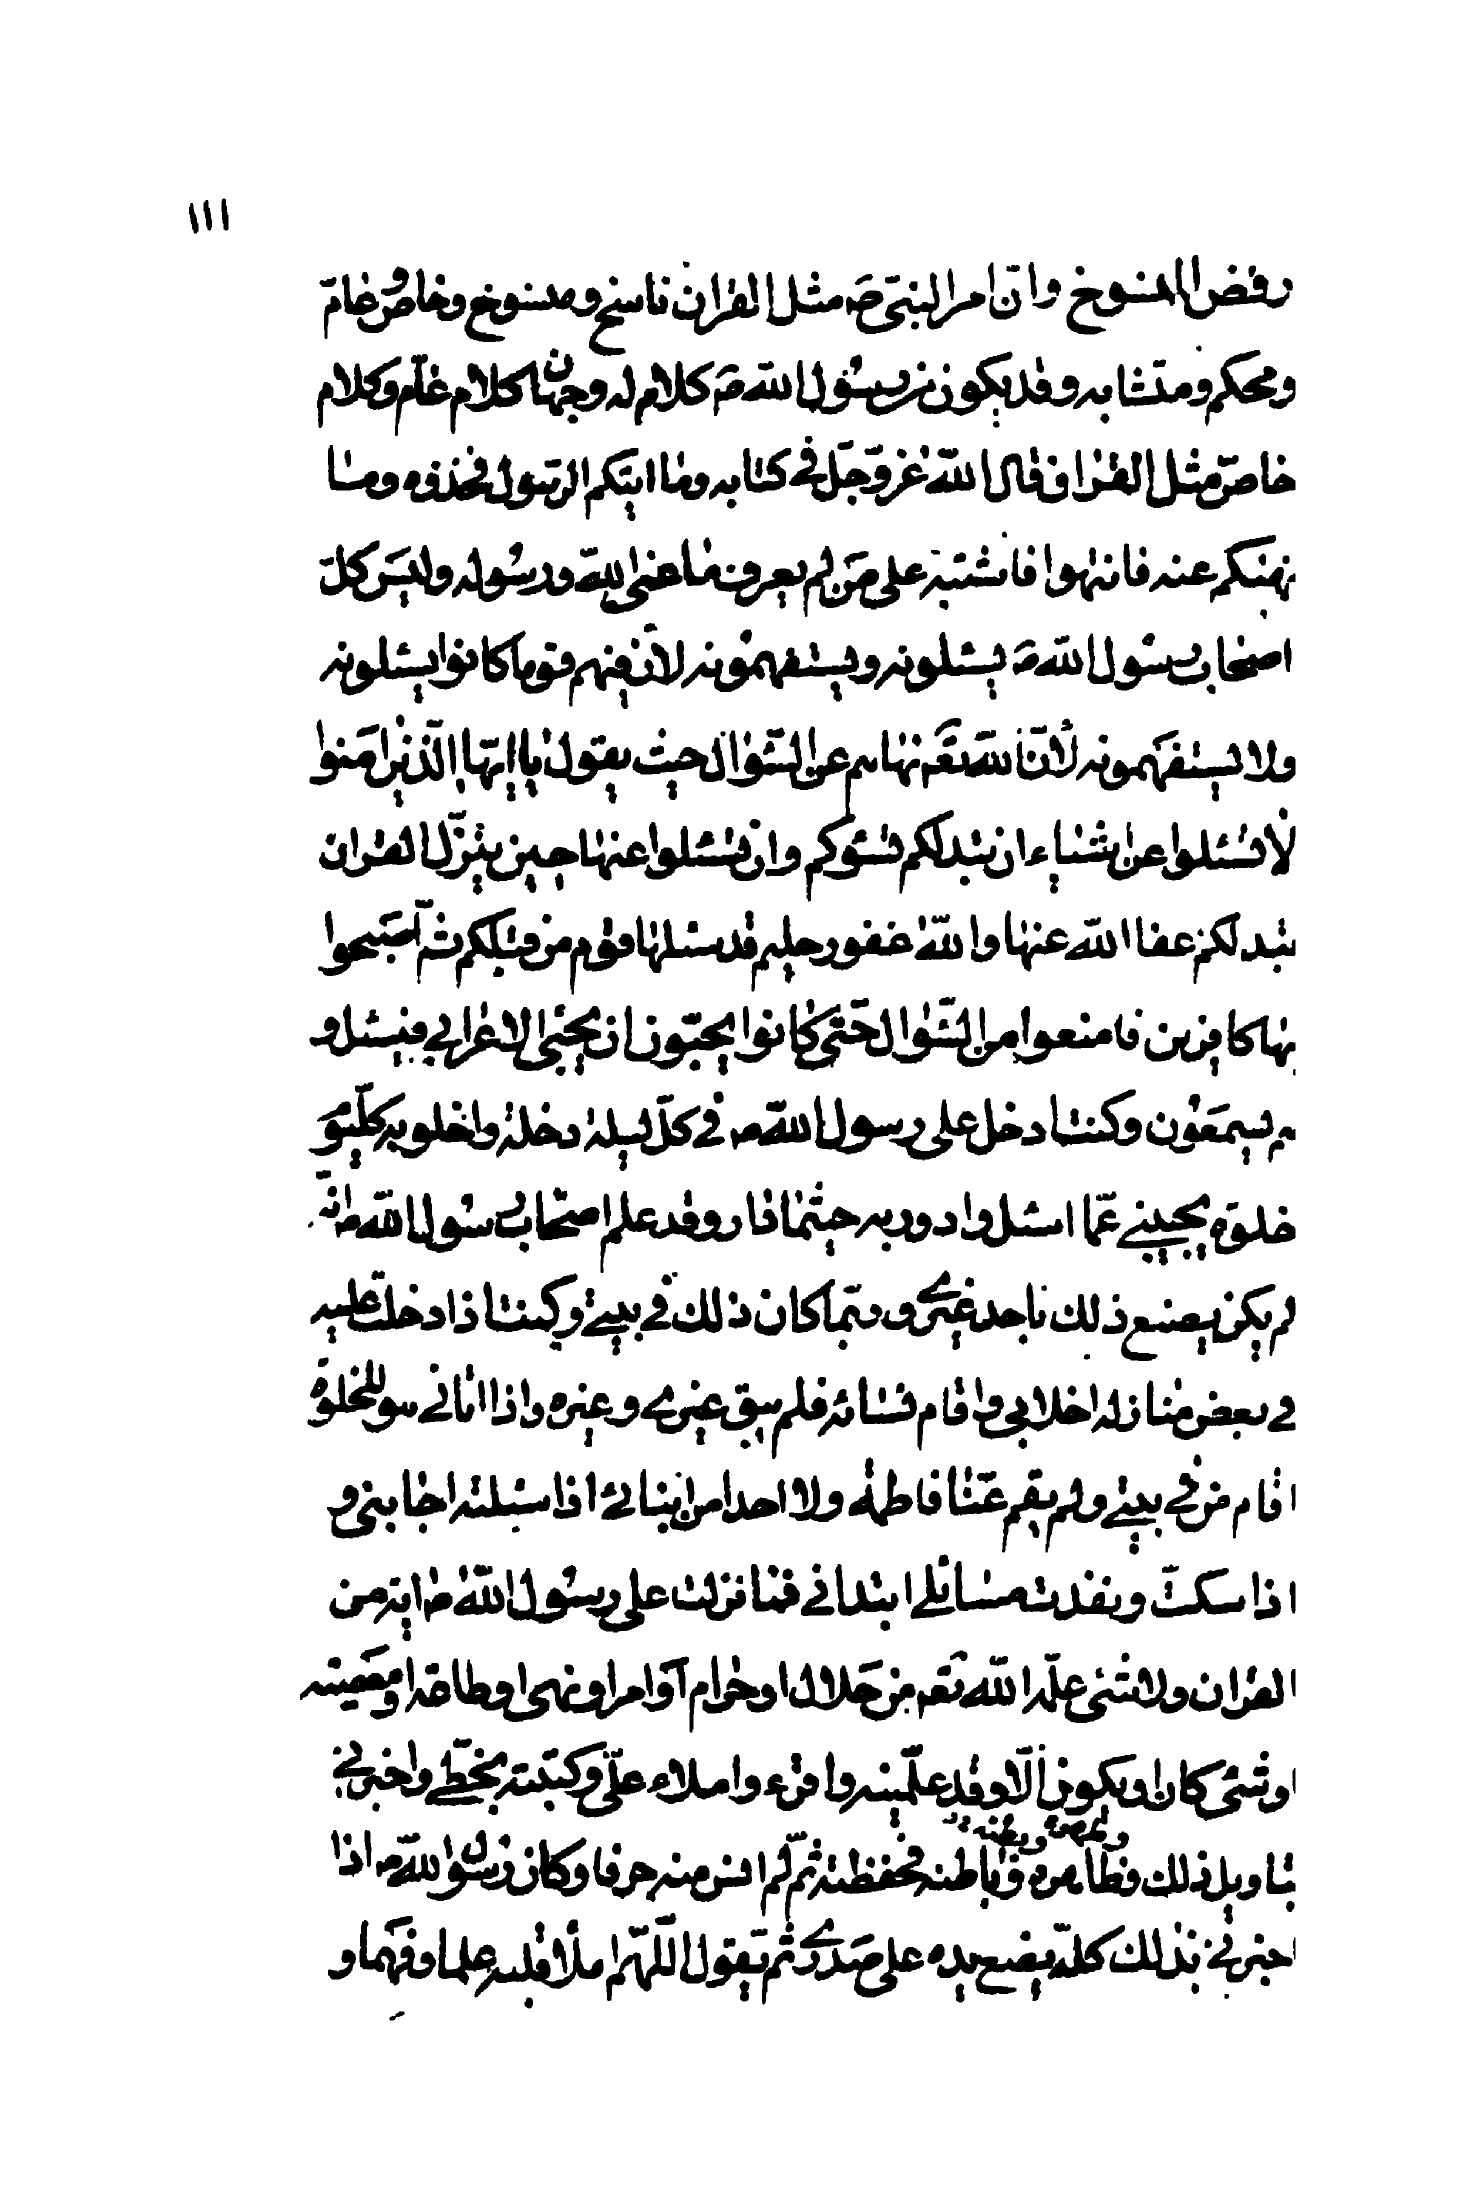 ١١١
رفض المنسوخ وانّ امر النبىّ صَ مثل القران ناسخ ومنسوخ وخاصّ وعامّ
ومحكم ومتشابه وقد يكون من رسول اللّه صَ كلام له وجهان كلام عامّ وكلام
خاصّ مثل القران قال اللّه عزّ وجلّ فى كتابه وما اتيكم الرّسول فخذوه وما
نهيكم عنه فانتهوا فاشتبه على من لم يعرف ما عنى اللّه ورسوله وليس كلّ
اصحاب رسول اللّه صَ يسئلونه ويستفهمونه لأنّ فيهم قوما كانوا يسئلونه
ولا يستفهمونه لأنّ اللّه تعَ نهاهم عن السّؤال حيث يقول يا ايّها الّذين امنوا
لا تسئلوا عن اشياء ان تبد لكم تسؤكم وان تسئلوا عنها حين ينزّل القران
تبد لكم عفا اللّه عنها واللّه غفور حليم قد سئلها قوم من قبلكم ثمّ اصبحوا
بها كافرين فامنعوا من السّؤال حتّى كانوا يحبّون ان يجئى الاعرابى فيسئل و
هم يسمعون وكنت ادخل على رسول اللّه صَ فى كلّ ليلة دخلة واخلو به كلّ يوم
خلوة يجيبنى عمّا اسئل وادور به حيثما دار وقد علم اصحاب رسول اللّه صَ انّه
لم يكن يصنع ذلك باحد غيرى وربّما كان ذلك فى بيتى وكنت اذا دخلت عليه
فى بعض منازله اخلا بى واقام نسائه فلم يبق غيرى وغيره واذا اتانى هو للخلوة
اقام من فى بيتى ولم يقم عنّا فاطمة ولا احدا من ابنائى اذا سئلته اجابنى و
اذا سكتّ ونفدت مسائلى ابتدانى فما نزلت على رسول اللّه صَ اية من
القران ولا شئى علّمه اللّه تعَ من حلال او حرام او امر او نهى او طاعة او معصية
او شئى كان او يكون الّا وقد علّمنيه واقرء واملاء علىّ وكتبته بخطّى واخبرنى
بتاويل ذلك وظاهره وباطنه فحفظته ثمّ لم انس منه حرفا وكان رسول اللّه صَ اذا
اخبرنى بذلك كلّه يضع يده على صدرى ثمّ يقول اللّهمّ املأ قلبه علما وفهما و